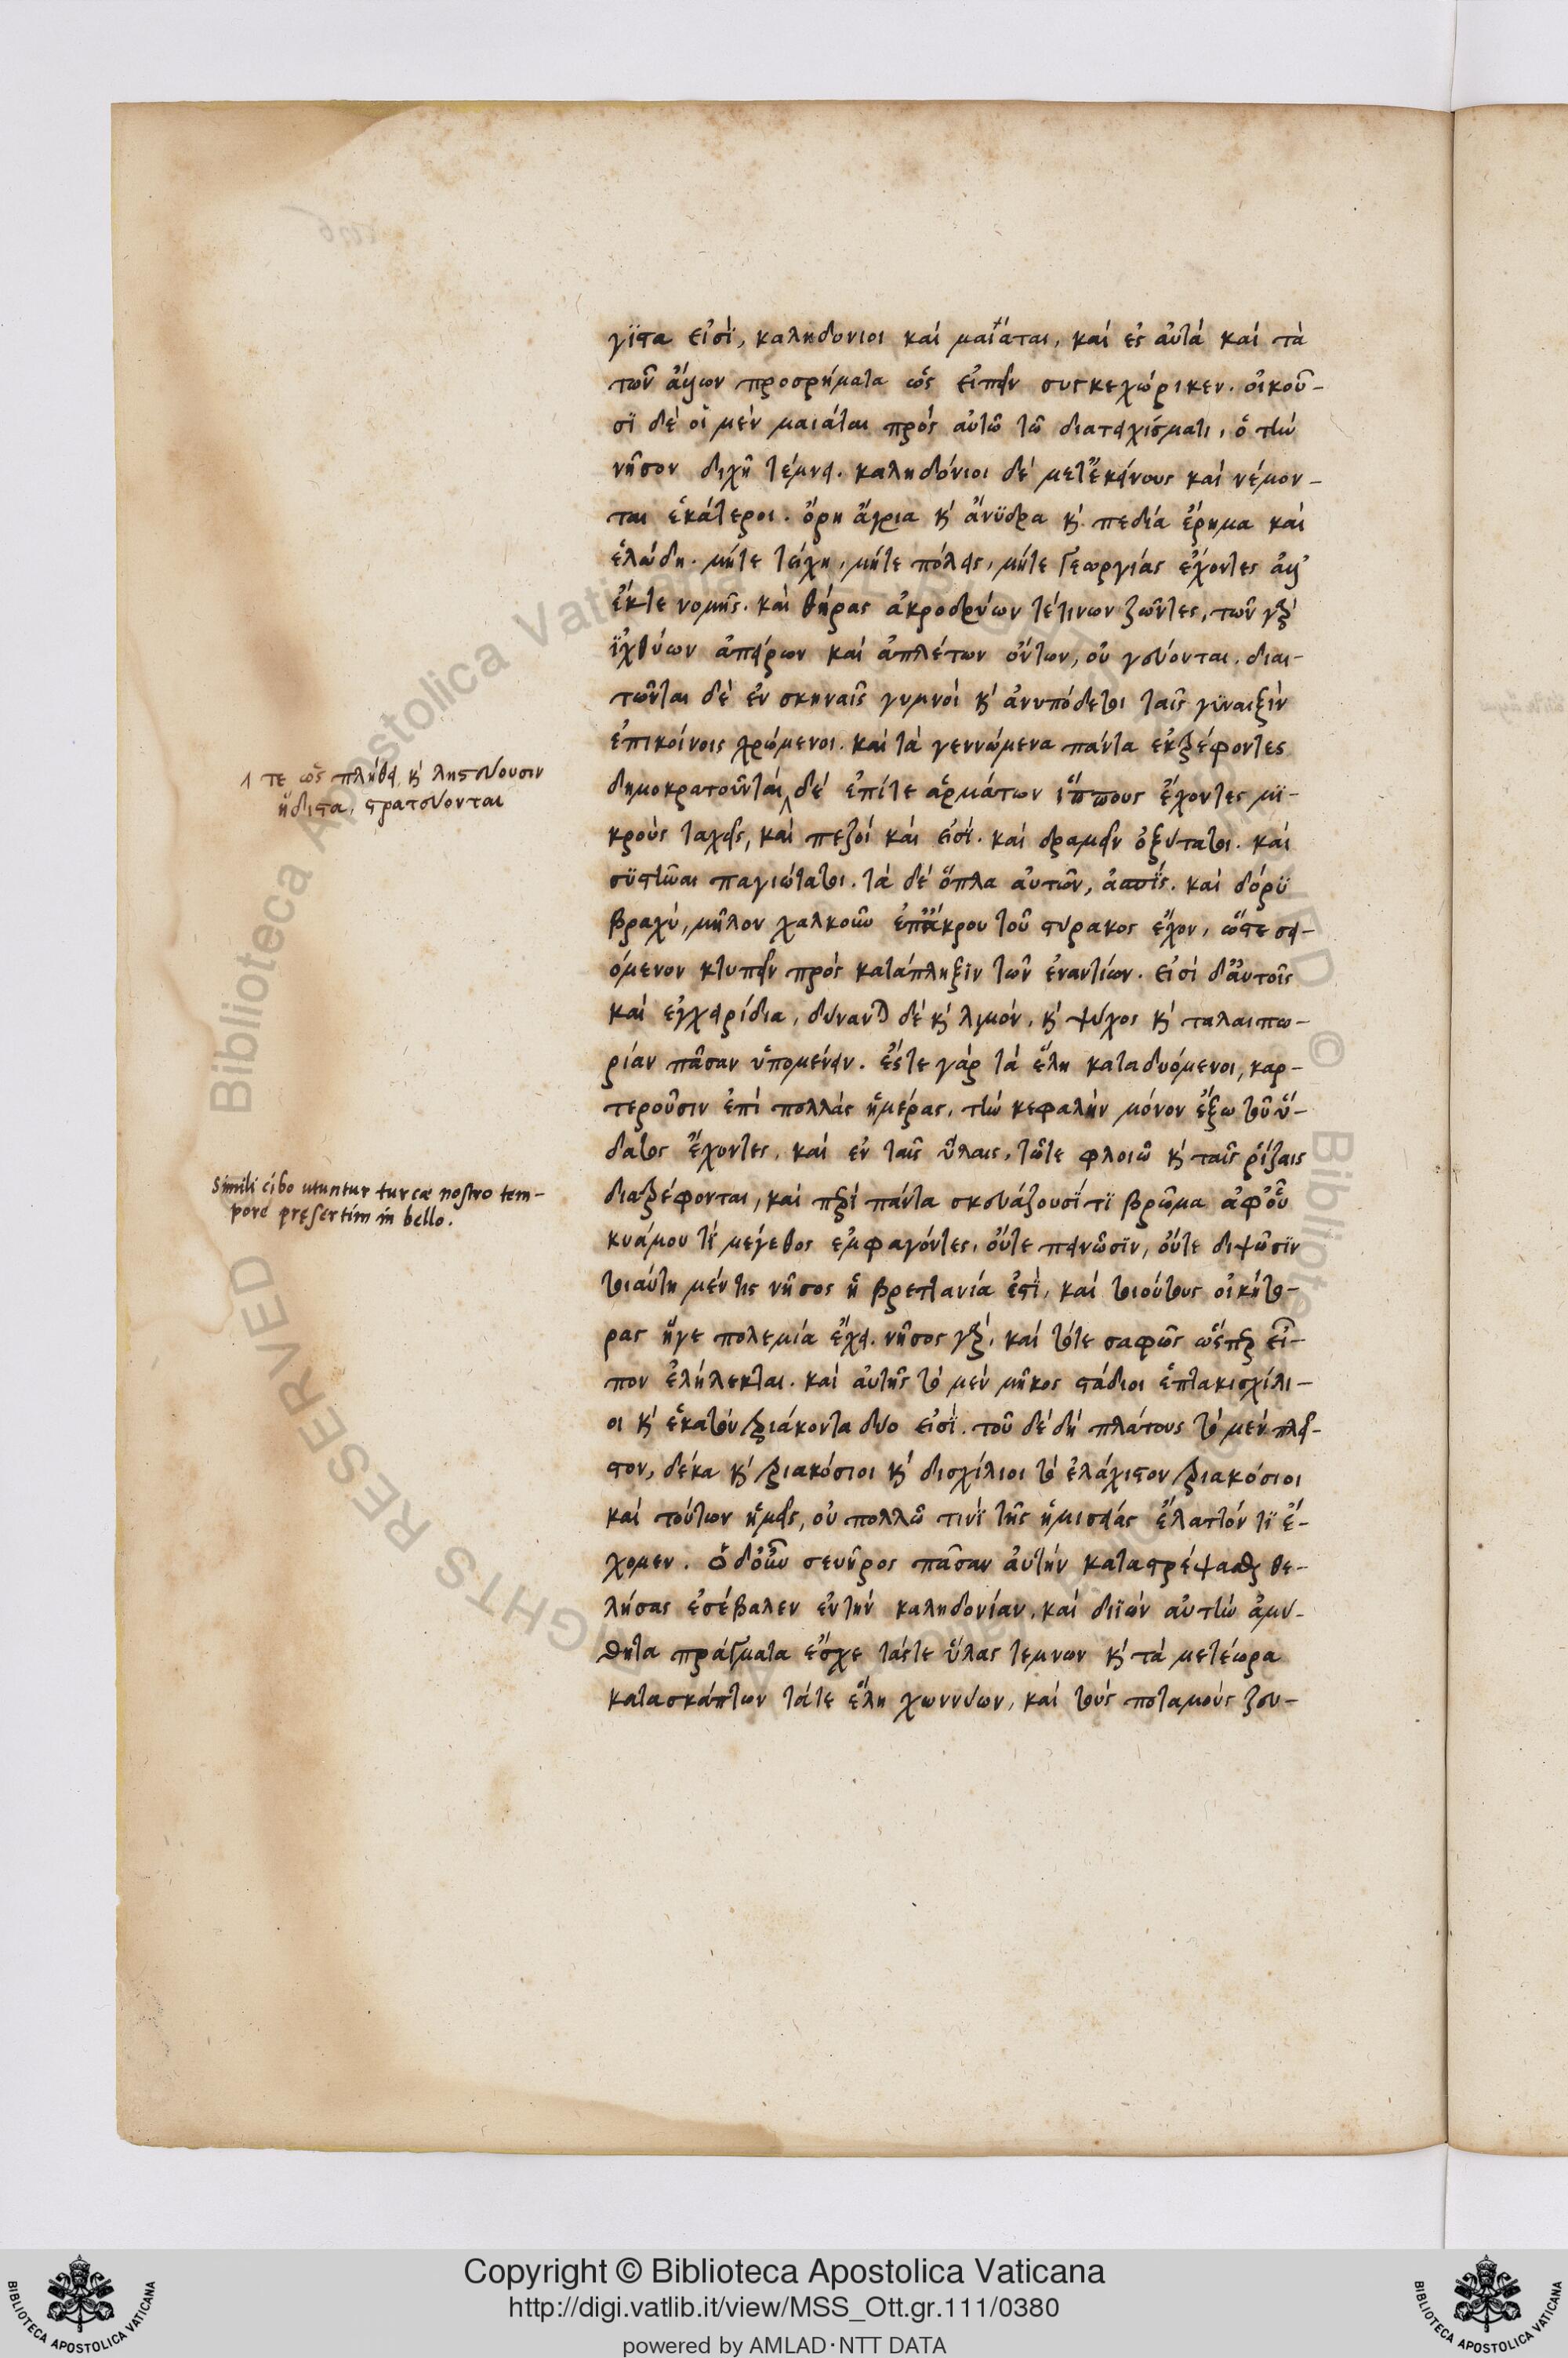 γϊστα εἰσὶ, καληδονιοι καὶ μαιάται, καὶ ἐς αὐτὰ καὶ τὰ
των ἄλλων προσρήματα ὡς εἰπεῖν συγκεχώρικεν. οἰκοῦ-
σϊ δὲ οἱ μὲν μαιάται πρὸς αὐτῶ τῶ διατειχίσματι, ὃ τὴν
νῆσον διχῆ τέμνει. καληδόνιοι δὲ μετ᾽ἐκείνους καὶ νέμον-
ται ἑκάτεροι. ὄρη ἄγρια κ᾽ ἄνϋδρα κ᾽ πεδία ἔρημα καὶ
ἑλώδη. μήτε τείχη, μήτε πόλεις, μήτε γεωργίας ἔχοντες ἀλλ᾽
ἔκτε νομῆς. καὶ θήρας ἀκροδρύων τέτινων ζῶντες, τῶν γὰρ
ἰχθύων ἀπείρων καὶ ἀπλέτων ὄντων, οὐ γεύονται. διαι-
τῶνται δὲ ἐν σκηναῖς γυμνοὶ κ᾽ ἀνυπόδετοι ταῖς γϋναιξὶν
ἐπικοίνοις χρώμενοι. καὶ τὰ γεννώμενα πάντα ἐκτρέφοντες
δημοκρατοῦνται δὲ ἐπίτε ἁρμάτων ἵππους ἔχοντες μϊ-
κροὺς ταχεῖς, καὶ πεζοὶ καὶ εἰσϊ. καὶ δραμεῖν ὀξύτατοι. καὶ
σϋστῶαι παγιώτατοι. τὰ δὲ ὅπλα αὐτῶν, ἀσπϊς. καὶ δόρϋ
βραχύ, μῆλον χαλκοῦν ἐπ᾽ἄκρου τοῦ στύρακος ἔχον, ὥστε σει-
όμενον κτυπεῖν πρὸς κατάπληξϊν τῶν ἐναντίων. εἰσὶ δ᾽αὐτοῖς
καὶ ἐγχειρίδια, δύνανται δὲ κ᾽ λιμόν, κ᾽ ψύχος κ᾽ ταλαιπω-
ρίαν πᾶσαν ὑπομένειν. ἔς τε γὰρ τὰ ἕλη καταδυόμενοι, καρ-
τεροῦσιν ἐπὶ πολλὰς ἡμέρας, τὴν κεφαλὴν μόνον ἔξω τοῦ ὕ-
δατος ἔχοντες, καὶ ἐν ταῖς ὕλαις, τῶτε φλοιῶ κ᾽ ταῖς ῥίζαις
διατρέφονται, καὶ πρὶ πάντα σκευάζουσϊ τϊ βρῶμα ἀφ᾽οὗ
κυάμου τϊ μέγεθος ἐμφαγόντες, οὔτε πεινῶσϊν, οὔτε διψῶσϊν
τοιαύτη μέν τις νῆσος ἡ βρεττανία ἐστϊ, καὶ τοιούτους οἰκήτο-
ρας ἥγε πολεμία ἔχει. νῆσος γὰρ, καὶ τότε σαφῶς ὥσπερ εἶ-
πον ἐλήλεκται. καὶ αὐτῆς τὸ μὲν μῆκος στάδιοι ἑπτακισχίλι-
οι κ᾽ ἑκατὸν τριάκοντα δυο εἰσϊ. τοῦ δὲ δὴ πλάτους τὸ μὲν πλεῖ-
στον, δέκα κ᾽ τριακόσιοι κ᾽ δισχίλιοι τὸ ἐλάχιστον τριακόσιοι
καὶ τούτων ἡμεῖς, οὐ πολλῶ τινϊ τῆς ἡμισείας ἔλαττόν τϊ ἔ-
χομεν. ὁ δ᾽οὖν σευῆρος πᾶσαν αὐτὴν καταστρέψασθαι θε-
λήσας ἐσέβαλεν ἐν τὴν καληδονίαν, καὶ διϊὼν αὐτὴν ἀμύ-
θητα πράγματα ἔσχε τάςτε ὕλας τεμνων κ᾽ τὰ μετέωρα
κατασκάπτων τάτε ἕλη χωννύων, καὶ τοὺς ποταμοὺς ζευ-
τε ὡς πλήθει κ᾽ ληστεύουσιν
ἥδιστα, στρατεύονται
Simili cibo utuntur turcae nostro tem-
pore presertim in bello.
Copyright © Biblioteca Apostolica Vaticana
http://digi.vatlib.it/view/MSS_Ott.gr.111/0380
powered by AMLAD·NTT DATA